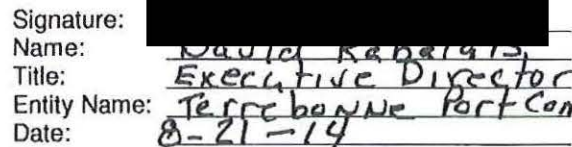 Signature:
Name: David Rabalais,
Title: Executive Director
Entity Name: Terrebonne Port Com
Date: 8-21-14